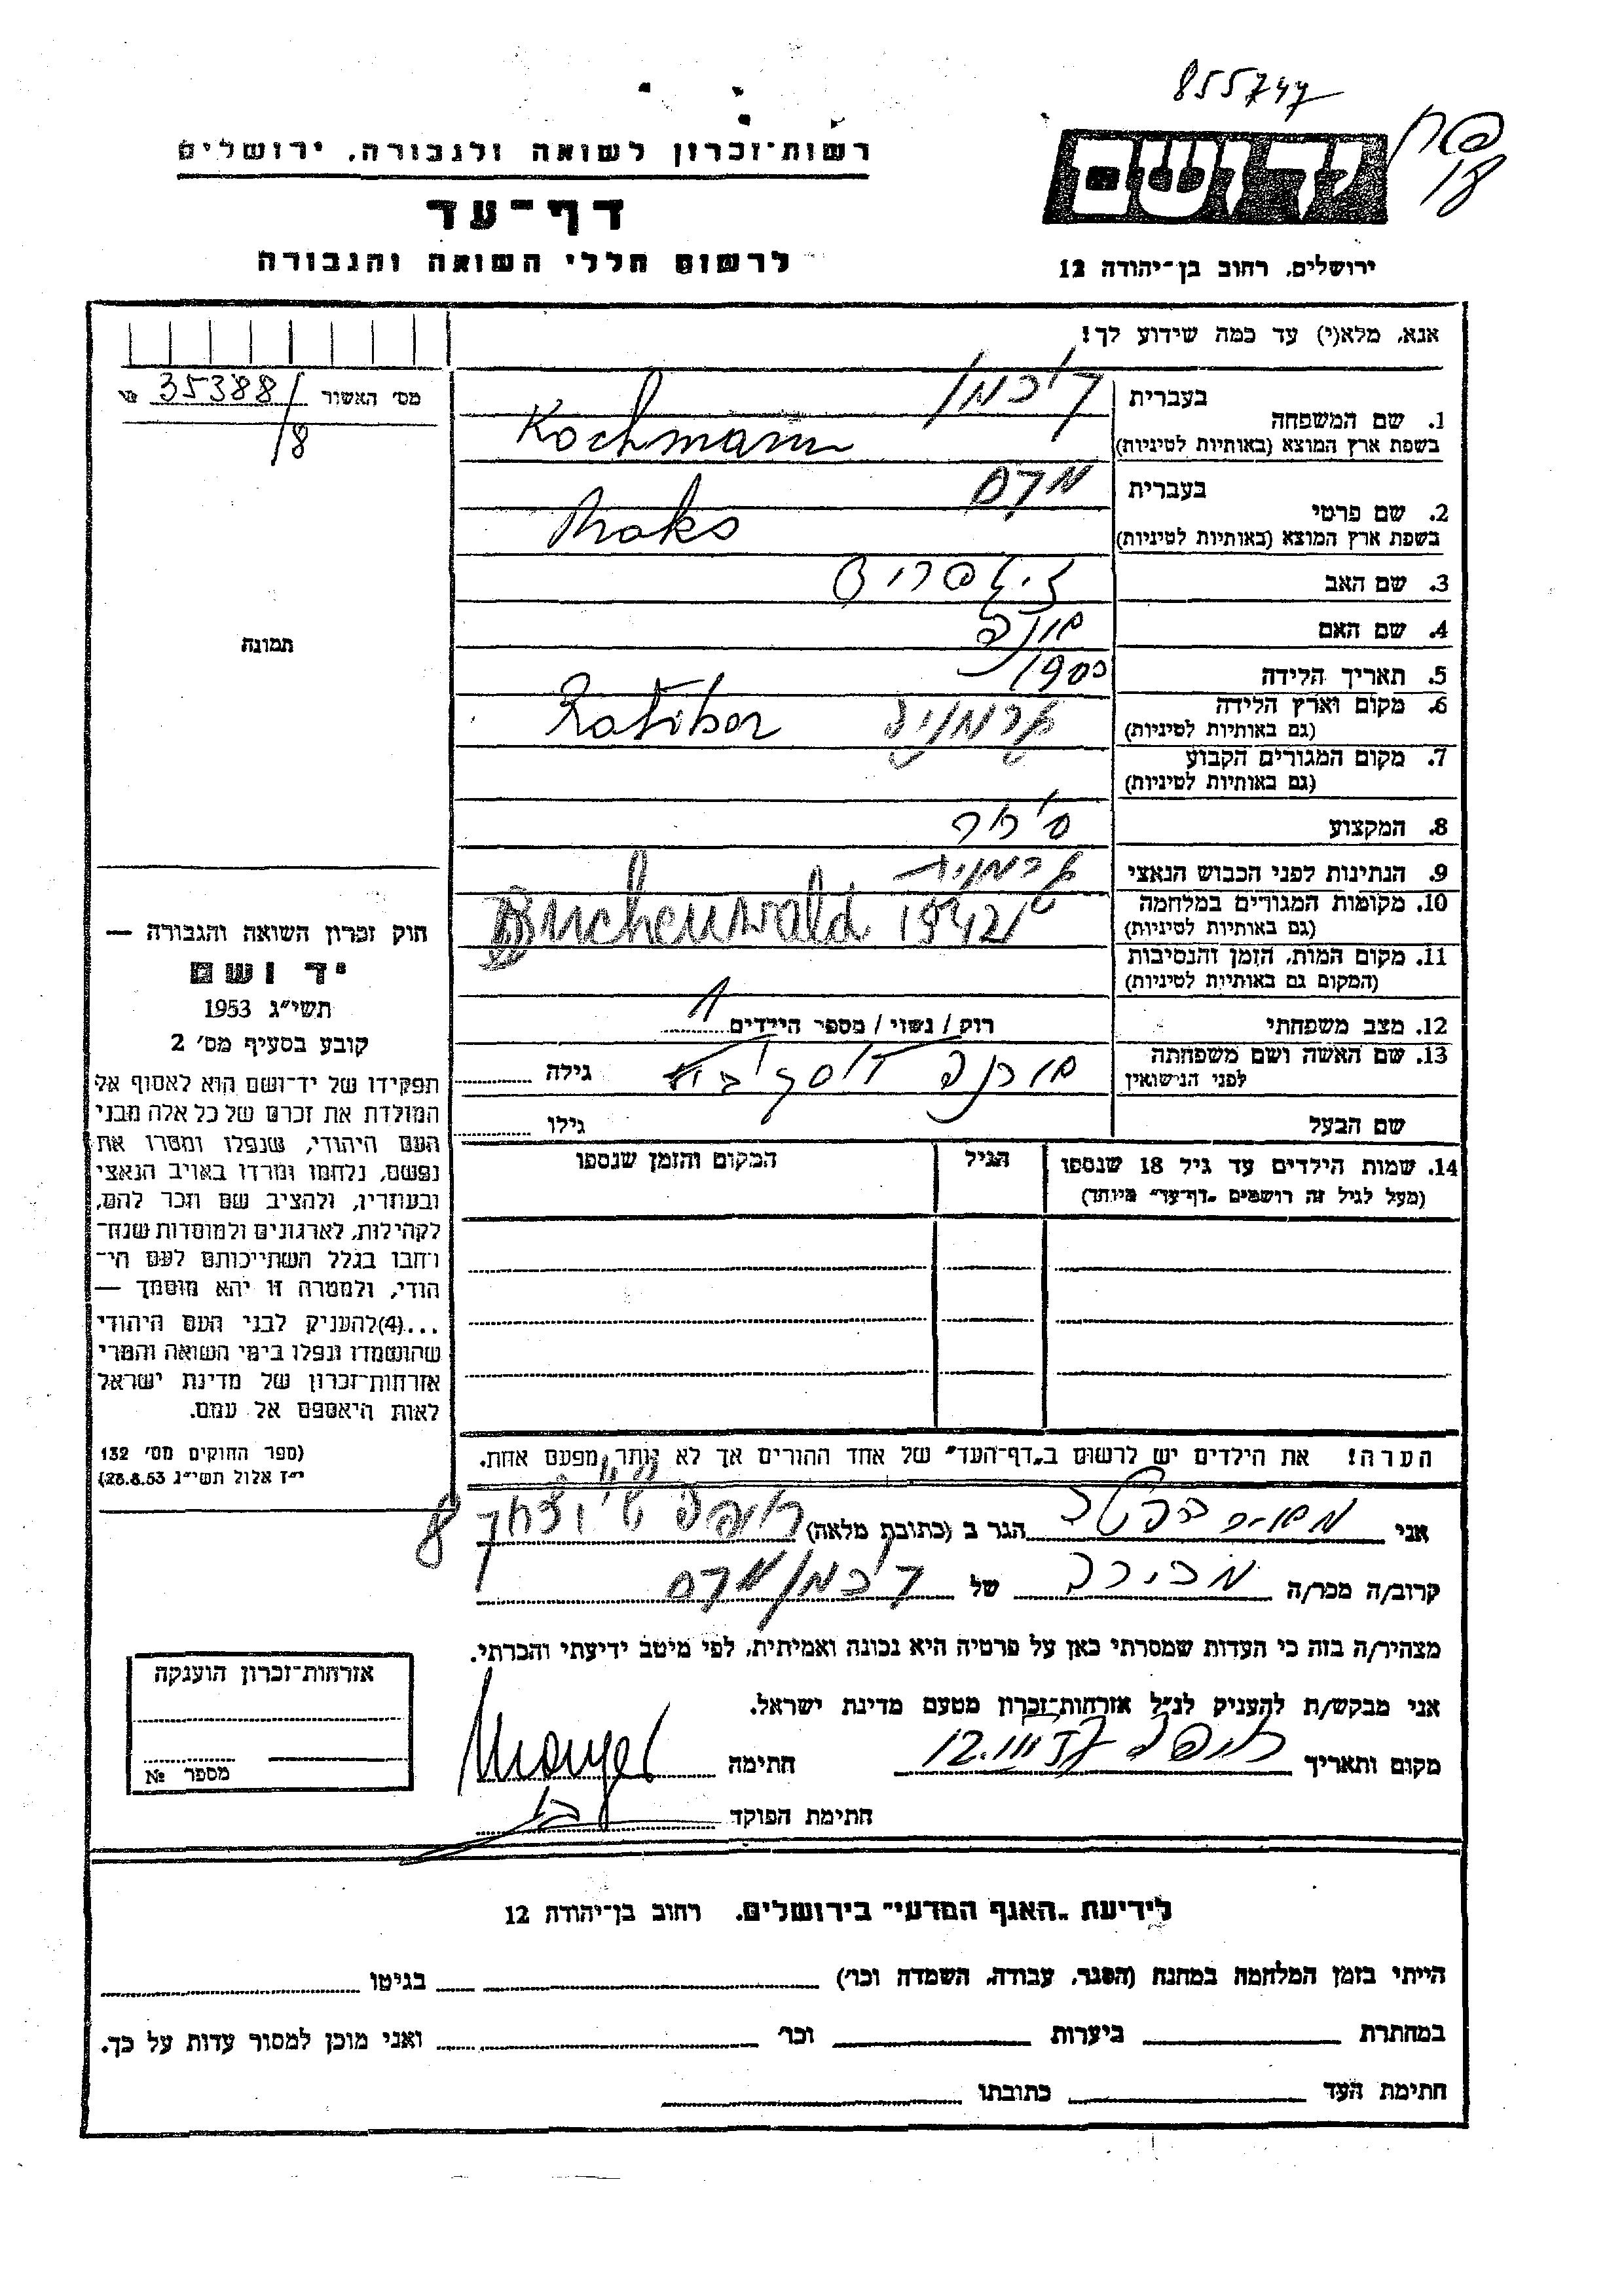 855747
רשות־זכרון לשואה ולגבורה, ירושלים
יד ושם
דף־עד
לרשום חללי השואה והגבורה
ירושלים, רחוב בן־יהודה 12
אנא, מלא(י) עד כמה שידוע לך!
מס׳ האשור 35388/8 №
1. שם המשפחה
בעברית קוכמן
בשפת ארץ המוצא (באותיות לטיניות) Kochmann
2. שם פרטי
בעברית מקס
בשפת ארץ המוצא (באותיות לטיניות) Maks
3. שם האב זיגפריד
4. שם האם
5. תאריך הלידה 1900
6. מקום וארץ הלידה גרמניה Ratibor
(גם באותיות לטיניות)
7. מקום המגורים הקבוע
(גם באותיות לטיניות)
8. המקצוע סוחר
9. הנתינות לפני הכבוש הנאצי גרמנית
10. מקומות המגורים במלחמה Buchenwald 1942
(גם באותיות לטיניות)
11. מקום המות, הזמן והנסיבות
(המקום גם באותיות לטיניות)
12. מצב משפחתי רוק / נשוי / מספר הילדים 1
13. שם האשה ושם משפחתה
לפני הנישואין
גילה
שם הבעל גילו
14. שמות הילדים עד גיל 18 שנספו
(מעל לגיל זה רושמים „דף־עד״ מיוחד)
הגיל
המקום והזמן שנספו
הערה! את הילדים יש לרשום ב„דף־העד״ של אחד ההורים אך לא יותר מפעם אחת.
תמונה
חוק זכרון השואה והגבורה —
יד ושם
תשי״ג 1953
קובע בסעיף מס׳ 2
תפקידו של יד־ושם הוא לאסוף אל
המולדת את זכרם של כל אלה מבני
העם היהודי, שנפלו ומסרו את
נפשם, נלחמו ומרדו באויב הנאצי
ובעוזריו, ולהציב שם וזכר להם,
לקהילות, לארגונים ולמוסדות שנח־
רבו בגלל השתייכותם לעם הי־
הודי, ולמטרה זו יהא מוסמך —
...(4) להעניק לבני העם היהודי
שהושמדו ונפלו בימי השואה והמרי
אזרחות־זכרון של מדינת ישראל
לאות היאספם אל עמם.
(ספר החוקים מס׳ 132
י״ז אלול תשי״ג 28.8.53)
אני הגר ב (כתובת מלאה) חיפה 8
קרוב/ה מכר/ה מכירה של קוכמן מקס
מצהיר/ה בזה כי העדות שמסרתי כאן על פרטיה היא נכונה ואמיתית, לפי מיטב ידיעתי והכרתי.
אני מבקש/ת להעניק לנ״ל אזרחות־זכרון מטעם מדינת ישראל.
מקום ותאריך חיפה חתימה
חתימת הפוקד
אזרחות־זכרון הוענקה
מספר №
לידיעת „האגף המדעי״ בירושלים, רחוב בן־יהודה 12
הייתי בזמן המלחמה במחנה (הסגר, עבודה, השמדה וכו׳) בגיטו
במחתרת ביערות וכו׳ ואני מוכן למסור עדות על כך.
חתימת העד כתובתו